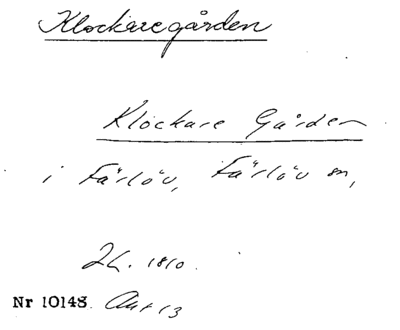 Klockaregården
Klockare Gården
i Färlöv, Färlöv sn,
1810.
Nr 10148.